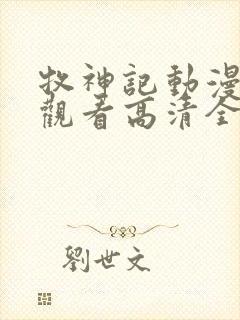 牧神記動漫
觀看高清全
劉世文